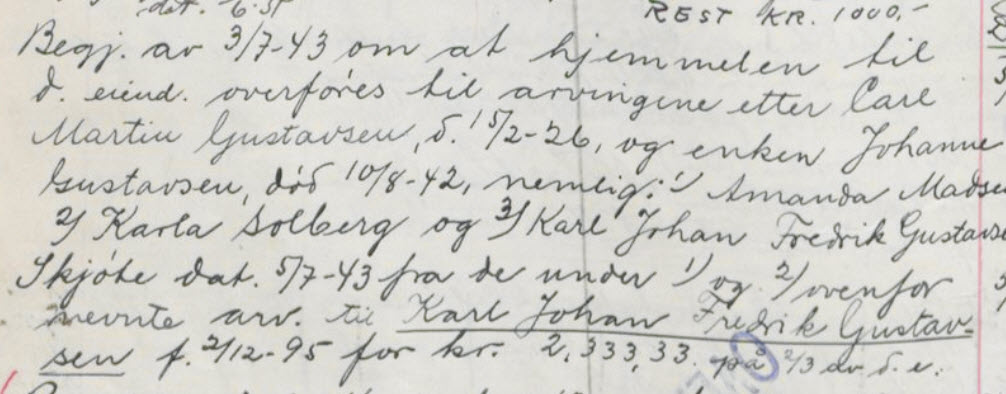 dat. 6.51
REST KR. 1000,-
Begj. av 3/7-43 om at hjemmelen til
d. eiend. overføres til arvingene etter Carl
Martin Gustavsen, d. 15/2-26, og enken Johanne
Gustavsen, død 10/8-42, nemlig: 1) Amanda Madse
2) Karla Solberg og 3) Karl Johan Fredrik Gustavse
Skjøte dat. 5/7-43 fra de under 1) og 2) ovenfor
nevnte arv. til Karl Johan Fredrik Gustav-
sen f. 2/12-95 for kr. 2,333,33. på 2/3 av d. e.